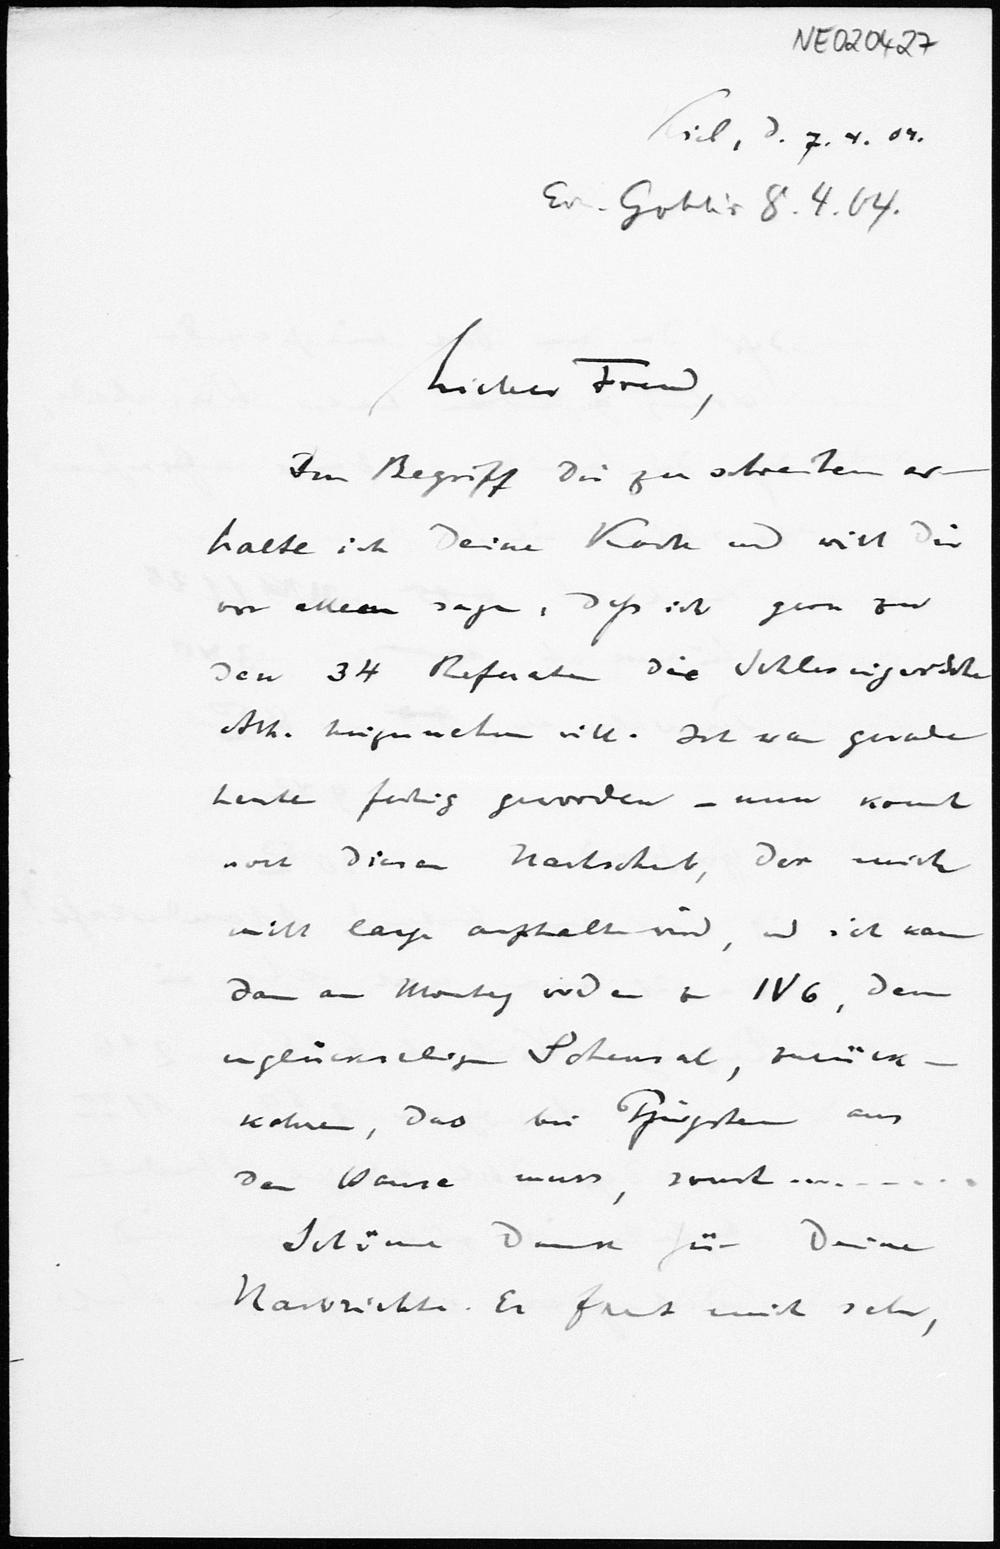 NE020427
Kiel, d. 7. 4. 04.
Göttin 8.4.04.
Lieber Freund,
Im Begriff Dir zu schreiben er-
halte ich Deine Karte und will Dir
vor allem sagen, daß ich gern zu
den 34 Referaten die Schleswigersche
Abh. hinzunehmen will. Ich war gerade
heute fertig geworden – nun kommt
noch dieser Nachschub, der mich
nicht lange aufhalten wird, und ich kann
dann am Montag wieder zu IV 6, dem
unglückseligen Scheusal, zurück-
kehren, das bis Pfingsten aus
dem Hause muss, sonst ........
Schönen Dank für Deine
Nachrichten. Es freut mich sehr,